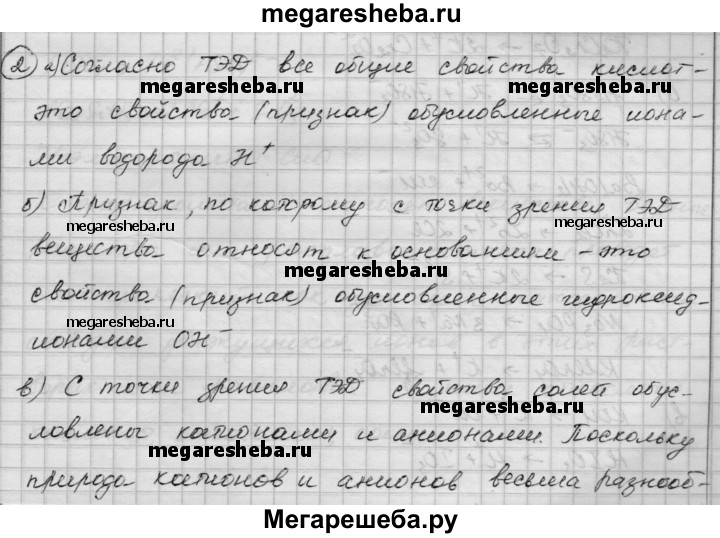 megaresheba.ru
2 а) Согласно ТЭД все общие свойства кислот-
это свойства (признак) обусловленные иона-
ми водорода H⁺
б) Признак, по которому с точки зрения ТЭД
megaresheba.ru
megaresheba.ru
вещества относят к основаниям – это
megaresheba.ru
свойства (признак) обусловленные гидроксид-
megaresheba.ru
ионами OH⁻
в) С точки зрения ТЭД свойства солей обус-
megaresheba.ru
ловлены катионами и анионами. Поскольку
megaresheba.ru
природа катионов и анионов весьма разнооб-
Мегарешеба.ру